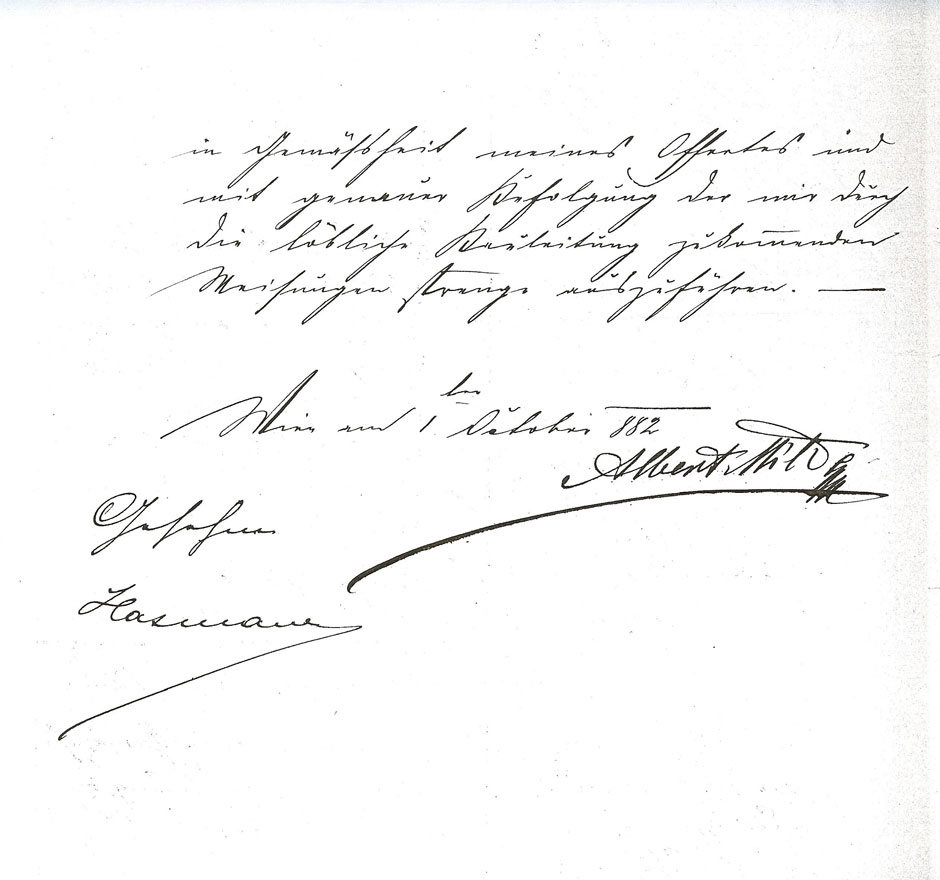 in Gemäßheit meines Offertes und
mit genauer Befolgung der mir durch
die löbliche Bauleitung zukom̅enden
Weisungen strenge auszuführen. —
Wien am 1ten October 882
Albert Milde
Gesehen
Hasenauer